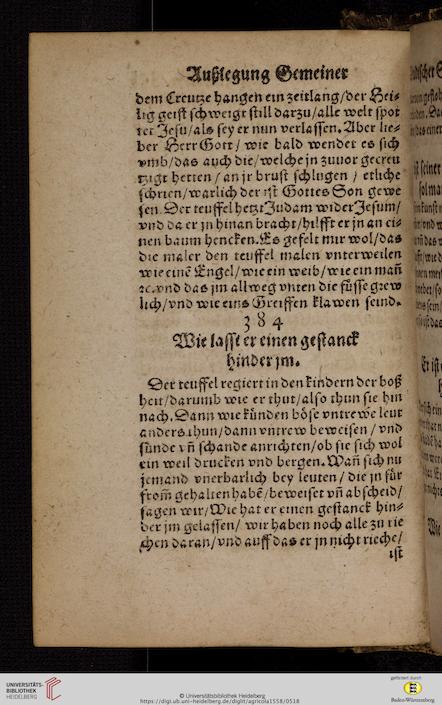 Außlegung Gemeiner
dem Creutze hangen ein zeitlang/der Hei-
lig geist schweigt still darzu/alle welt spot
tet Jesu/als sey er nun verlassen. Aber lie-
ber Herr Gott/ wie bald wendet es sich
vmb/das auch die/welche jn zuuor gecreu
tzigt hetten/an jr brust schlugen / etliche
schrien/warlich der ist Gottes Son gewe
sen. Der teuffel hetzt Judam wider Jesum/
vnd da er jn hinan bracht/hilfft er jn an ei-
nen baum hencken. Es gefelt mir wol/das
die maler den teuffel malen vnterweilen
wie einē Engel/wie ein weib/wie ein mañ
ꝛc. vnd das jm allweg vnten die füsse grew
lich/vnd wie eins Greiffen klawen seind.
384
Wie lasst er einen gestanck
hinder jm.
Der teuffel regiert in den kindern der boß
heit/darumb wie er thut/also thun sie hin
nach. Dann wie künden böse vntrewe leut
anders thun/dann vntrew beweisen / vnd
sünde vñ schande anrichten/ob sie sich wol
ein weil drucken vnd bergen. Wañ sich nu
jemand vnerbarlich bey leuten/die jn für
from̃ gehalten habē/beweiset vñ abscheid/
sagen wir/Wie hat er einen gestanck hin-
der jm gelassen/ wir haben noch alle zu rie
chen daran/vnd auff das er jn nicht rieche/
ist
UNIVERSITÄTS-
BIBLIOTHEK
HEIDELBERG
© Universitätsbibliothek Heidelberg
https://digi.ub.uni-heidelberg.de/diglit/agricola1558/0518
gefördert durch
Baden-Württemberg